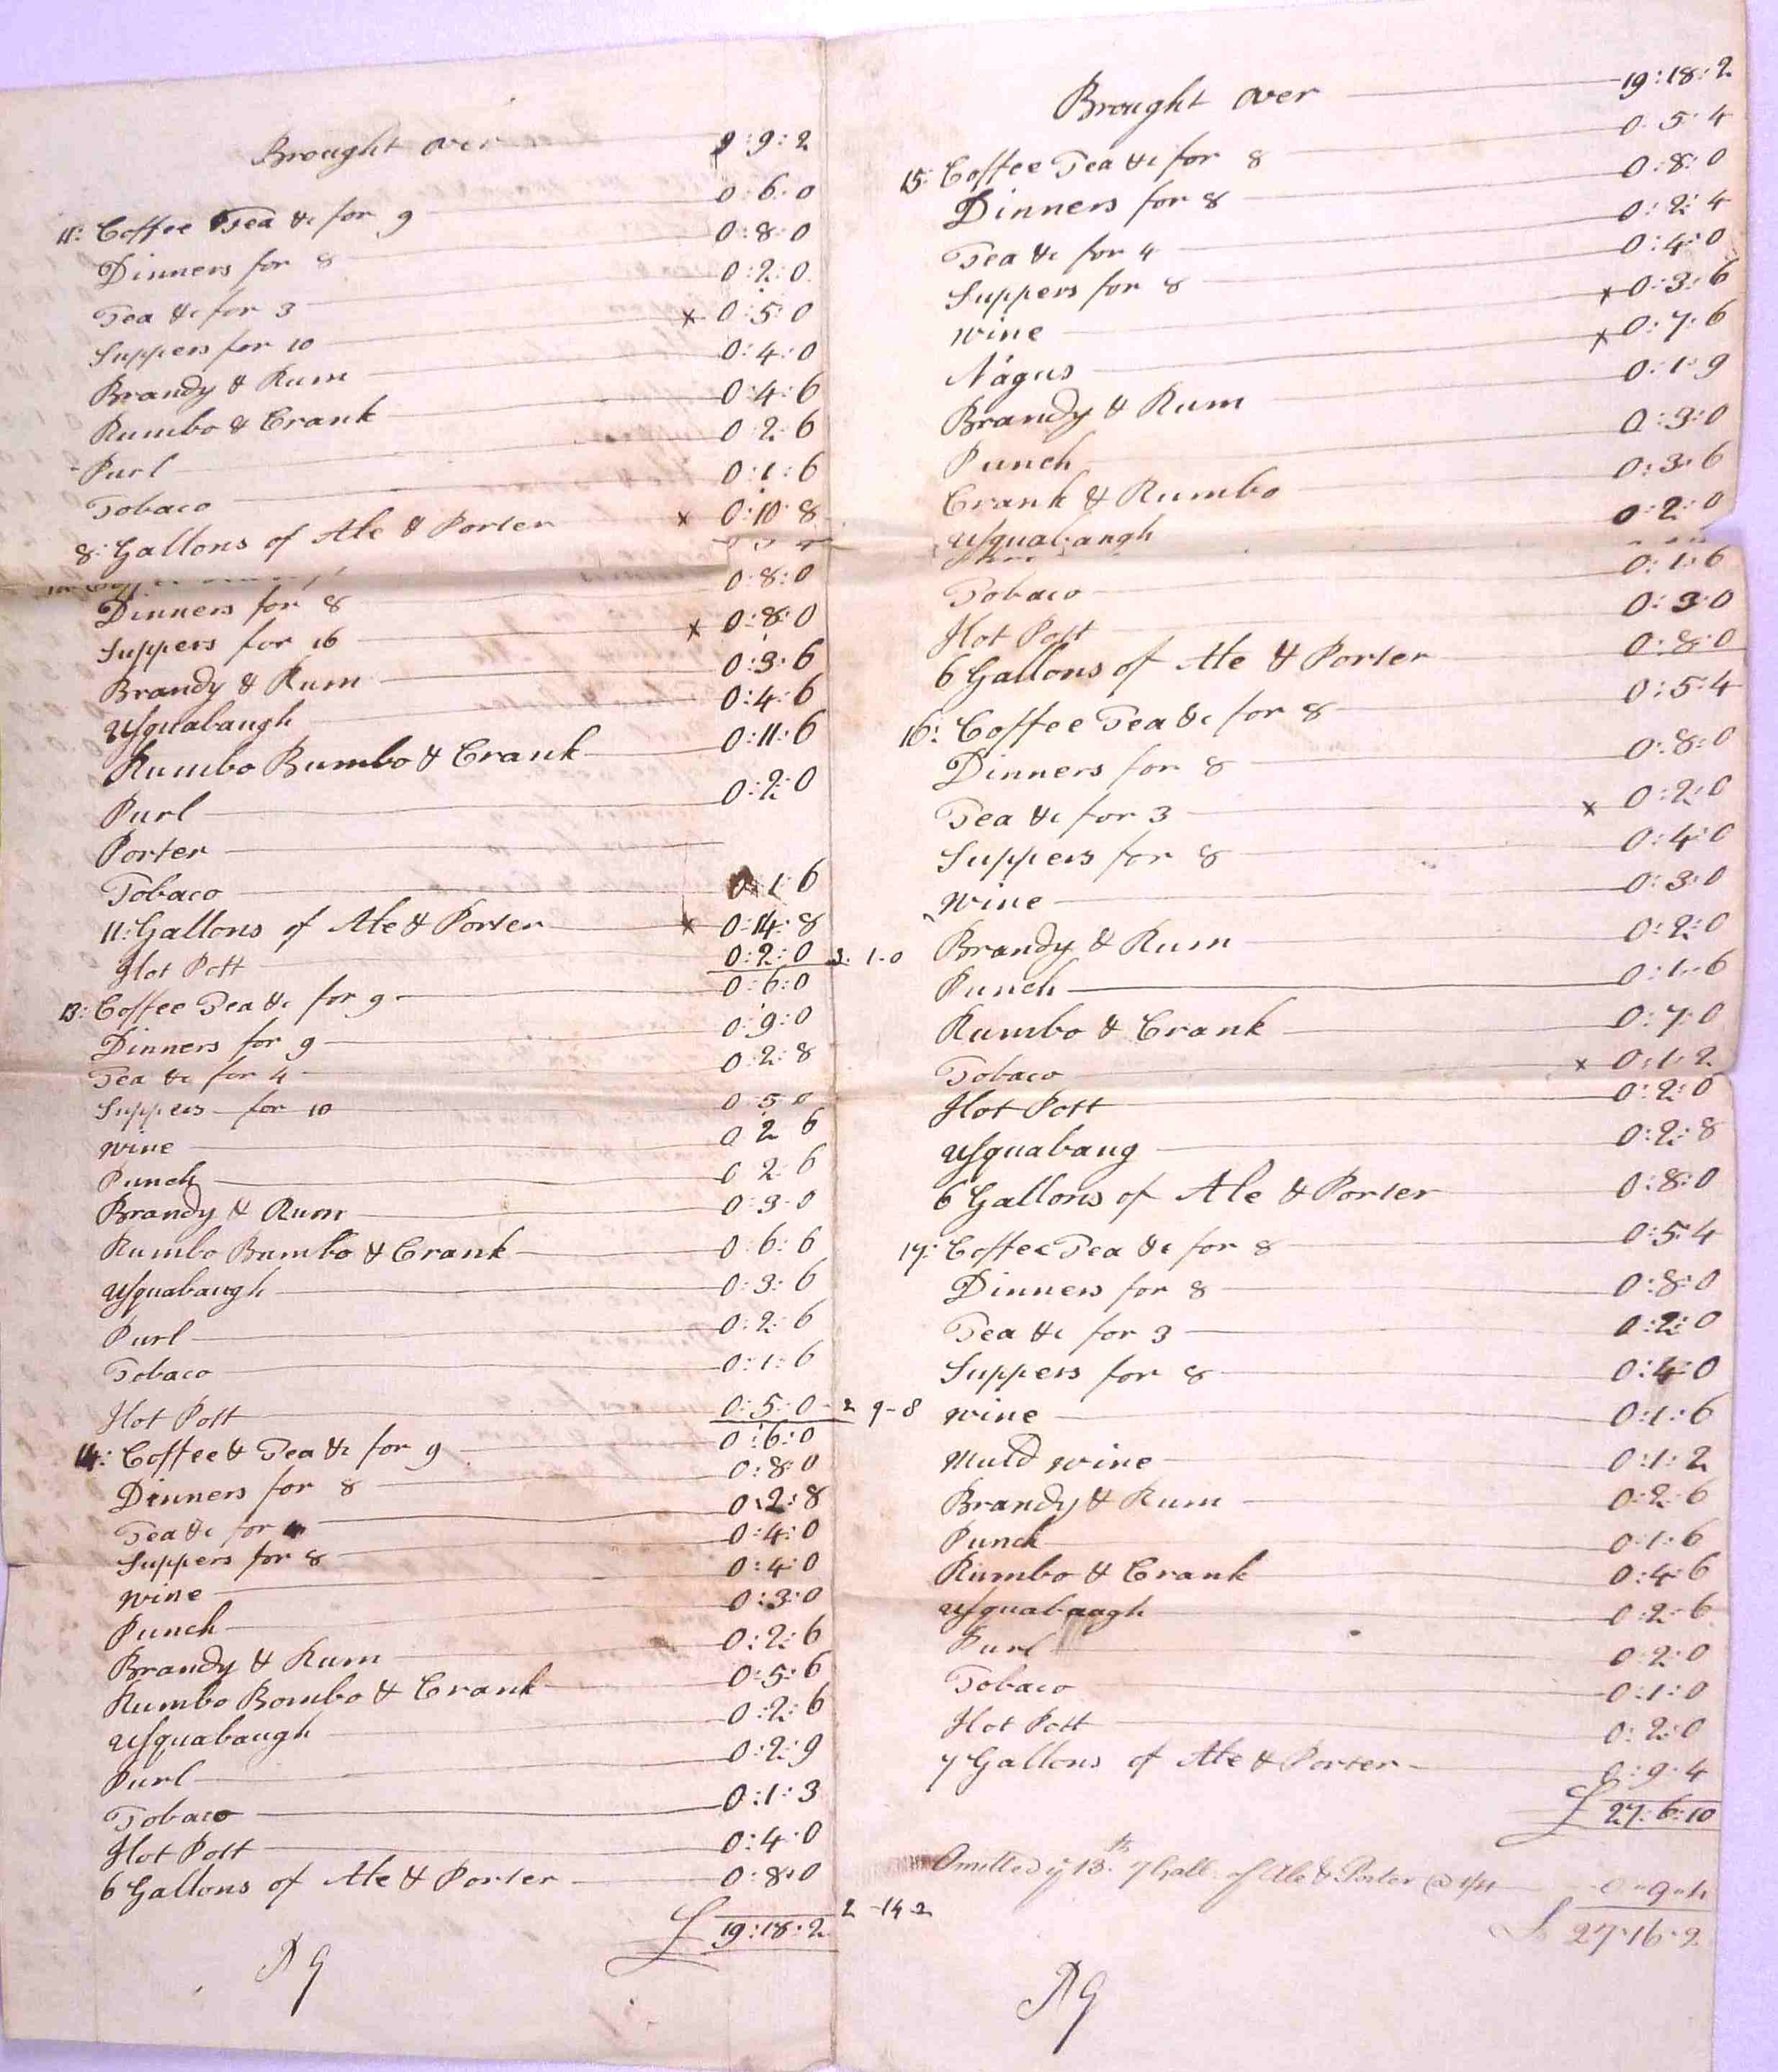 Brought over 9:9:2
11: Coffee Tea &c for 9 0:6:0
Dinners for 8 0:8:0
Tea &c for 3 0:2:0
Suppers for 10 x 0:5:0
Brandy & Rum 0:4:0
Rumbo & Crank 0:4:6
Purl 0:2:6
Tobaco 0:1:6
8: Gallons of Ale & Porter x 0:10:8
Dinners for 8 0:8:0
Suppers for 16 x 0:8:0
Brandy & Rum 0:3:6
Usquabaugh 0:4:6
Rumbo Bumbo & Crank 0:11:6
Purl 0:2:0
Porter
Tobaco 0:1:6
11: Gallons of Ale & Porter x 0:14:8
Hot Pott 0:2:0 3-1-0
13: Coffee Tea &c for 9 0:6:0
Dinners for 9 0:9:0
Tea &c for 4 0:2:8
Suppers for 10 0:5:0
Wine 0:2:6
Punch 0:2:6
Brandy & Rum 0:3:0
Rumbo Bumbo & Crank 0:6:6
Usquabaugh 0:3:6
Purl 0:2:6
Tobaco 0:1:6
Hot Pott 0:5:0 2 9-8
14: Coffee & Tea &c for 9 0:6:0
Dinners for 8 0:8:0
Tea &c for 0:2:8
Suppers for 8 0:4:0
Wine 0:4:0
Punch 0:3:0
Brandy & Rum 0:2:6
Rumbo Bombo & Crank 0:5:6
Usquabaugh 0:2:6
Purl 0:2:9
Tobaco 0:1:3
Hot Pott 0:4:0
6 Gallons of Ale & Porter 0:8:0
2-14-2
£ 19:18:2
Brought over 19:18:2
15: Coffee Tea &c for 8 0:5:4
Dinners for 8 0:8:0
Tea &c for 4 0:2:4
Suppers for 8 0:4:0
Wine x 0:3:6
Nagus x 0:7:6
Brandy & Rum 0:1:9
Punch 0:3:0
Crank & Rumbo 0:3:6
Usquabaugh 0:2:0
Tobaco 0:1:6
Hot Pott 0:3:0
6 Gallons of Ale & Porter 0:8:0
16: Coffee Tea &c for 8 0:5:4
Dinners for 8 0:8:0
Tea &c for 3 x 0:2:0
Suppers for 8 0:4:0
Wine 0:3:0
Brandy & Rum 0:2:0
Punch 0:1:6
Rumbo & Crank 0:7:0
Tobaco x 0:1:2
Hot Pott 0:2:0
Usquabaug 0:2:8
6 Gallons of Ale & Porter 0:8:0
17: Coffee Tea &c for 8 0:5:4
Dinners for 8 0:8:0
Tea &c for 3 0:2:0
Suppers for 8 0:4:0
Wine 0:1:6
Muld wine 0:1:2
Brandy & Rum 0:2:6
Punch 0:1:6
Rumbo & Crank 0:4:6
Usquabaugh 0:2:6
Purl 0:2:0
Tobaco 0:1:0
Hot Pott 0:2:0
7 Gallons of Ale & Porter 0:9:4
£ 27:6:10
Omitted ye 13th 7 Gall. of Ale & Porter @ 1/4 0"9"4
£ 27"16"2